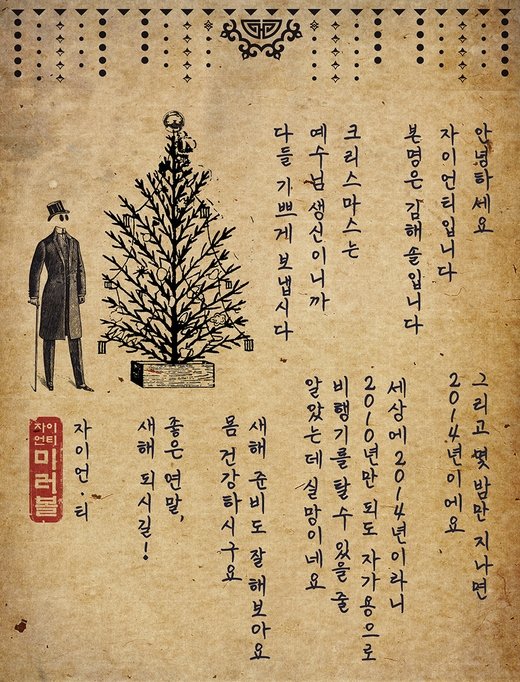 안녕하세요
자이언티입니다
본명은 김해솔입니다
크리스마스는
예수님 생신이니까
다들 기쁘게 보냅시다
그리고 몇 밤만 지나면
2014년이에요
세상에 2014년이라니
2010년만 되도 자가용으로
비행기를 탈 수 있을 줄
알았는데 실망이네요
새해 준비도 잘 해보아요
몸 건강하시구요
좋은 연말,
새해 되시길!
자이언.티
자이
언티
미러볼